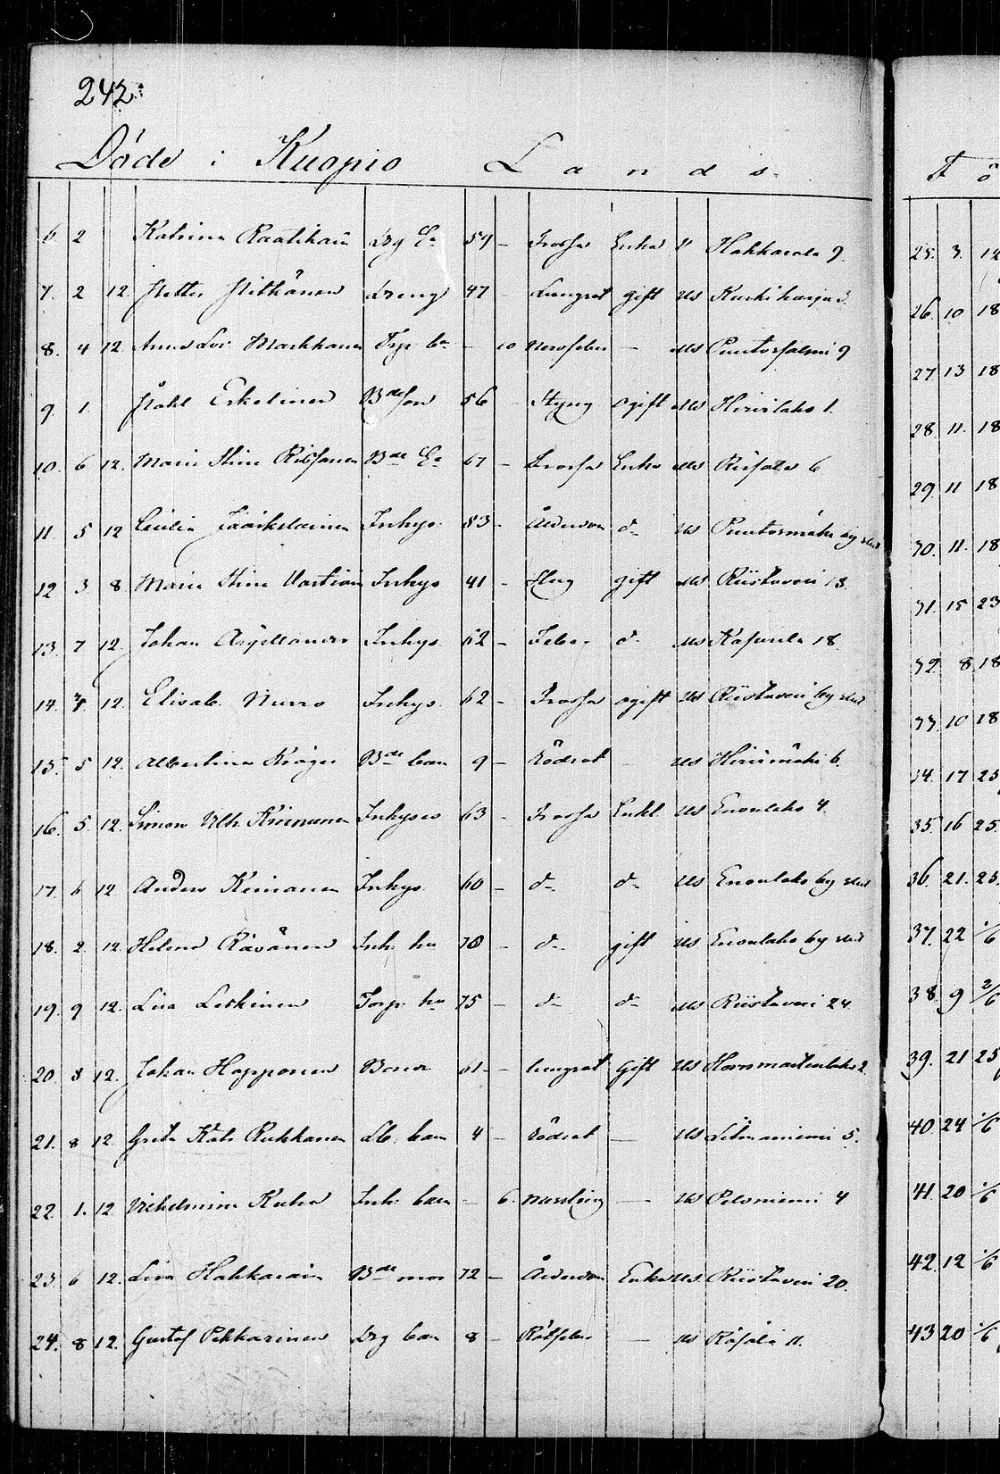 242
Döde i Kuopio Lands-
6. 2 Katrina Raatikain Drg E: 59 - Frossa Enka Hakkarala 9.
7. 2 12. Petter Pitkänen Dreng 47 Lungsot gift us Kurkiharju
8. 4 12. Anna Lovi Markkanen Torp b: - 10 Nervfeber - us Puutosalmi 9
9. 1. Påhl Eskelinen Bde son 56 Styng ogift us Hirvilaks 1.
10. 6 12. Maria Stina Rissanen Bde E: 67 - Frossa Enka us Risala 6
11. 5 12 Cecilia Jääskelainen Inhys. 83 - Ålderdom d: us Puutosmäki by
12 3 8. Maria Stina Vartiain Inhys 41 - Styng gift us Riistavesi 13.
13. 7 12. Johan Inhys. 62 - Feber d: us Kasurila 18.
14. 4. 12. Elisab. Nurro Inhys. 62 - Frossa ogift us Riistavesi by
15. 5 12. Albertina Kröger Bde barn 9 - Rödsot - us Hirvimäki 6.
16. 5 12. Simon Vilh Kinnunen Inhyses 63 - Frossa Enkl us Enonlaks 4
17. 6 12 Anders Keinanen Inhys. 60 - d: d: us Enonlaks by
18. 2. 12. Helena Räsänen Inh. hu 70 - d: gift us Enonlaks by
19. 9 12. Lisa Leskinen Torp. hu 75 - d: d: us Riistavesi 24.
20. 8 12. Johan Happonen Bonde 61 - Lungsot Gift us 2.
21. 8 12 Greta Kais. Rukkanen Lb. barn 4 - Rödsot - us Litmaniemi 5.
22. 1. 12 Vilhelmina Kuha Inh. barn - 6. Messling - us Pelonniemi 4
23. 6 12. Lisa Hakkarain Bde mor 72 - Ålderdom Enka us Riistavesi 20.
24. 8 12. Gustaf Pekkarinen Drg barn 8 - Rötfeber - us Räsälä 11.
25. 3. 12
26. 10 18
27. 13 18
28. 11. 18
29. 11 18
30. 11. 18
31. 15 23
32. 8 18
33. 10 18
34. 17 25
35. 16 25.
36. 21. 25.
37. 22 1/6
38. 9 2/6
39. 21 25
40. 24 1/6
41. 20 1/6
42. 12 1/6
43 20 1/6